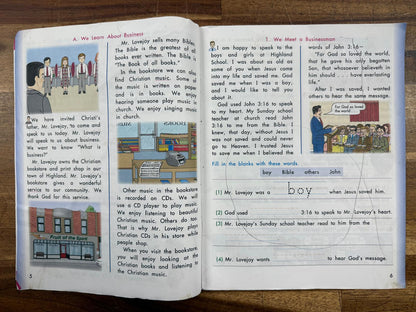 A. We Learn About Business
We have invited Christ's
father, Mr. Lovejoy, to come and
speak to us today. Mr. Lovejoy
will speak to us about business.
We want to know "What is
business?"
Mr. Lovejoy owns the Christian
bookstore and print shop in our
town of Highland. Mr. Lovejoy's
bookstore gives a wonderful
service to our community. We
thank God for this service.
5
Mr. Lovejoy sells many Bibles.
The Bible is the greatest of all
books ever written. The Bible is
"The Book of all books."
In the bookstore we can also
find Christian music. Some of
the music is written on paper
and is in books. We enjoy
hearing someone play music in
church. We enjoy singing music
in church.
Other music in the bookstore
is recorded on CDs. We will
use a CD player to play music.
We enjoy listening to beautiful
Christian music. Others do too.
That is why Mr. Lovejoy plays
Christian CDs in his store while
people shop.
When you visit the bookstore,
you will enjoy looking at the
Christian books and listening to
the Christian music.
1. We Meet a Businessman
I am happy to speak to the
boys and girls at Highland
School. I was about as old as
some of you when Jesus came
into my life and saved me. God
saved me when I was a boy,
and I would like to tell you
about it.
God used John 3:16 to speak
to my heart. My Sunday school
teacher at church read John
3:16 to me from the Bible. I
knew, that day, without Jesus I
was not saved and could never
go to Heaven. I trusted Jesus
to save me when I believed the
words of John 3:16–
"For God so loved the world,
that he gave his only begotten
Son, that whosoever believeth in
him should . . . have everlasting
life."
After I was saved, I wanted
others to hear the same message.
For God so loved
the world
Fill in the blanks with these words.
boy Bible others John
(1) Mr. Lovejoy was a boy when Jesus saved him.
(2) God used 3:16 to speak to Mr. Lovejoy's heart.
(3) Mr. Lovejoy's Sunday school teacher read to him from the
(4) Mr. Lovejoy wants to hear God's message.
6